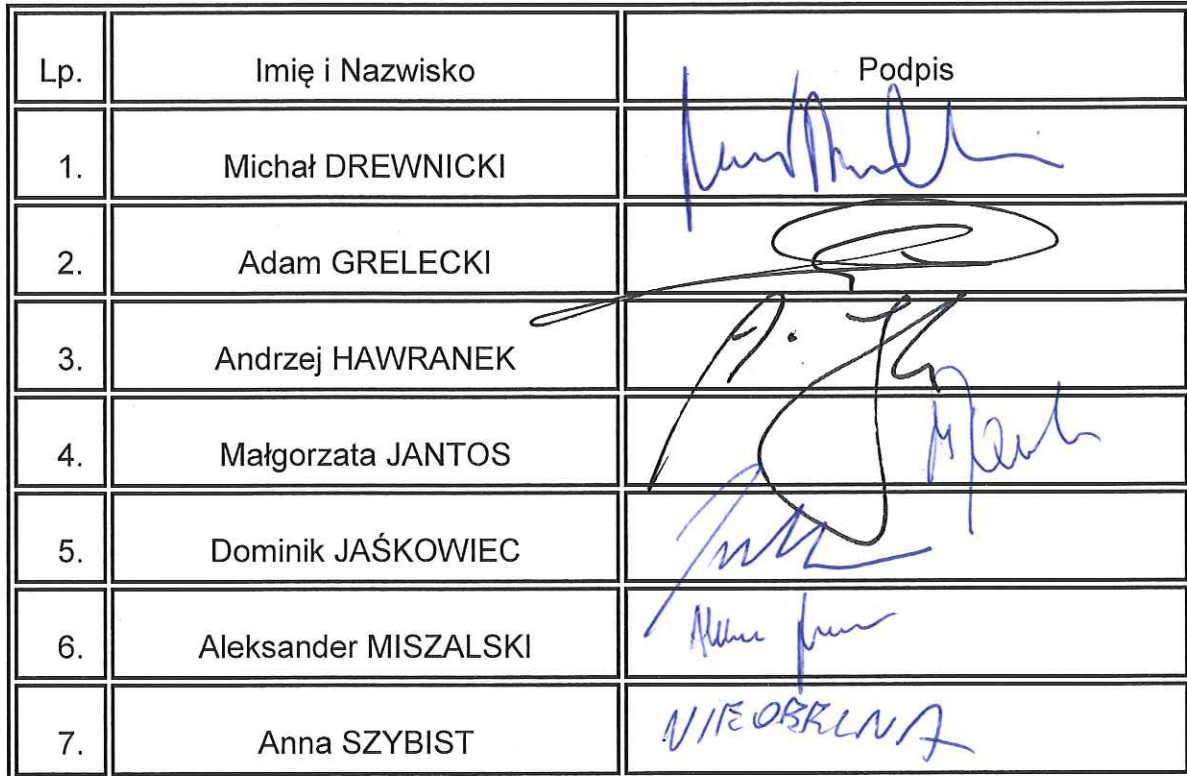 Lp. Imię i Nazwisko Podpis
1. Michał DREWNICKI
2. Adam GRELECKI
3. Andrzej HAWRANEK
4. Małgorzata JANTOS
5. Dominik JAŚKOWIEC
6. Aleksander MISZALSKI
7. Anna SZYBIST NIEOBECNA